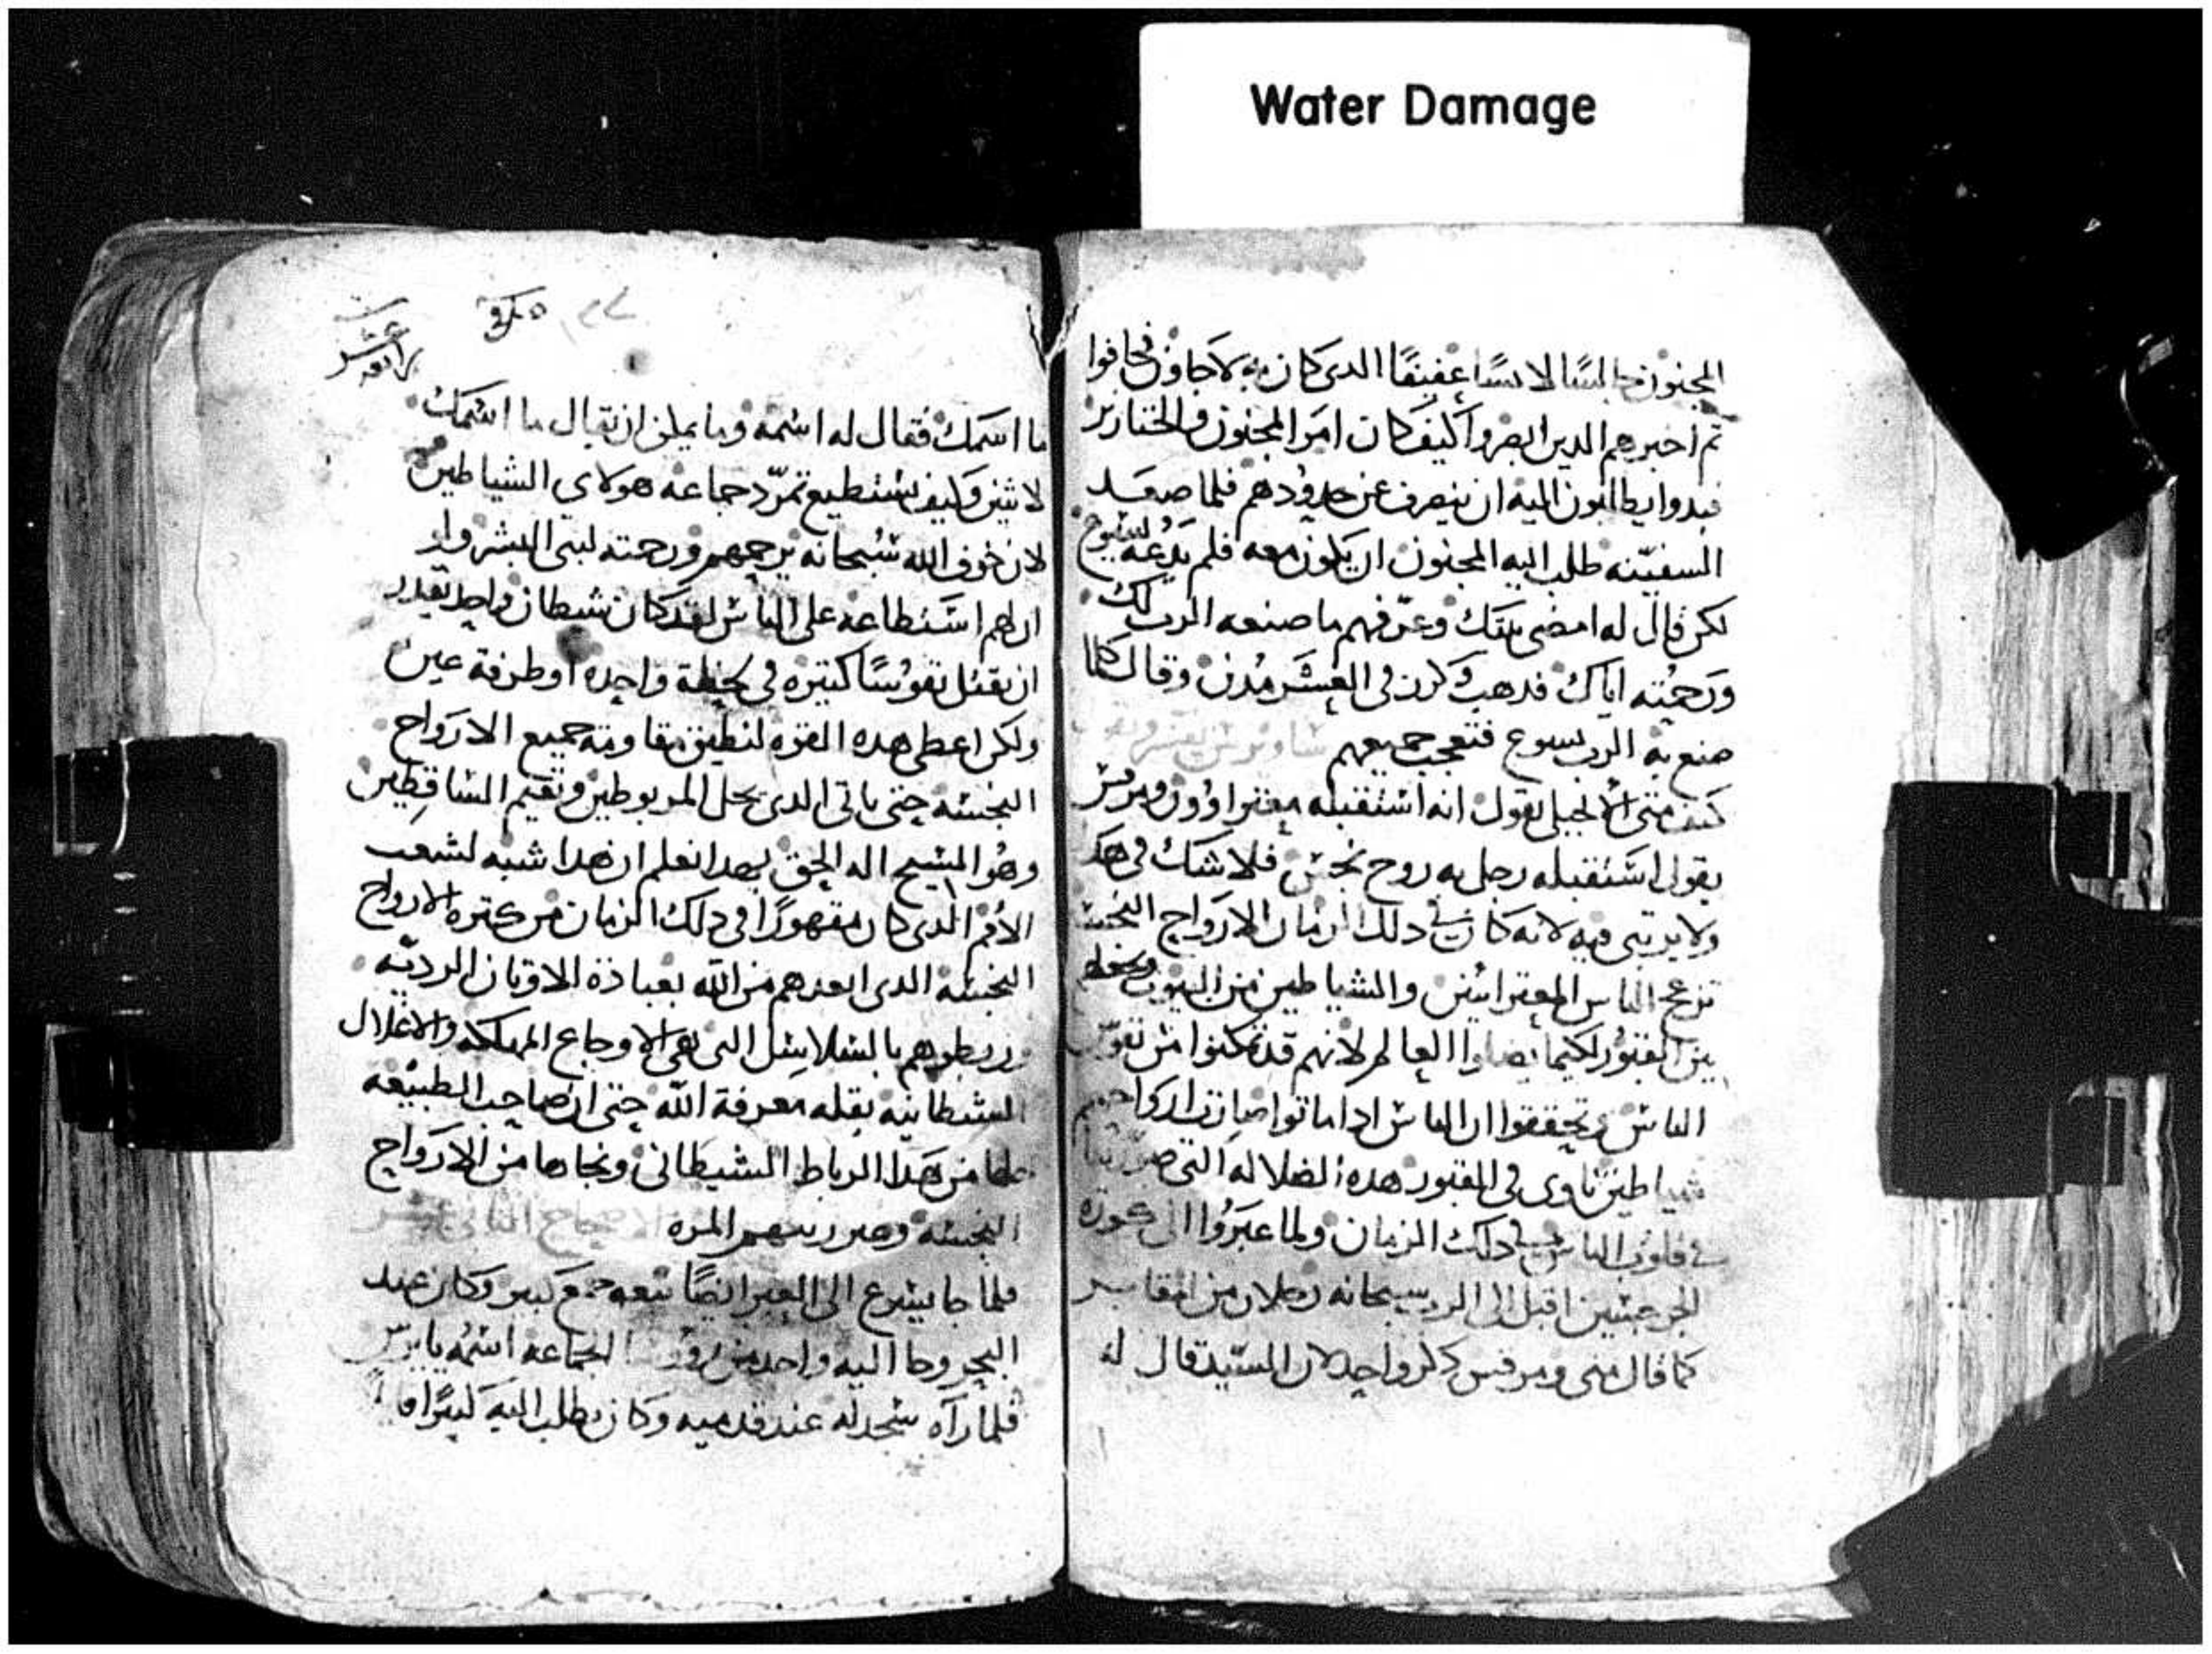 Water Damage
المجنون جالسًا لابسًا عفيفًا الدي كان به لاجاون فخافوا
تم اخبرهم الدين ابصروا كيف كان امر المجنون والخنازير
فبدوا يطالبون اليه ان ينصرف عن حدودهم فلما صعد
السفينه طلب اليه المجنون ان يكون معه فلم يدعه يسوع
لكن قال له امضي بيتك وعرفهم ما صنعه الرب لك
ورحمته اياك فدهب وكرز في العشر مدن وقال كلما
صنع به الرب يسوع فتعجب جميعهم
متي الانجيلي يقول انه استقبله
يقول استقبله رجل به روح نجس فلا شك في هدا
ولا فيه لانه كان في دلك الزمان الارواح النجسه
تزعج الناس والشياطين من البيوت
بين القبور لكيما العالم لانهم قد تمكنوا من
الناس وتحققوا ان الناس ادا ماتوا صارت ارواحهم
شياطين تاوي في القبور هده الضلاله التي
في قلوب الناس في دلك الزمان ولما عبروا الي كورة
الجرجسين اقبل الي الرب سبحانه رجلان من المقابر
كما قال متي ومرقس دكر واحد لان السيد قال له
مرقس
ما اسمك فقال له اسمه وما يمكن ان يقال ما اسمك
لاثنين وكيف يستطيع تمرّد جماعه هولاي الشياطين
لان خوف الله سبحانه ورحمته لبني البشر ولو
ان لهم استطاعه علي الناس لقد كان شيطان واحد يقدر
ان يقتل نفوسًا كتيره في لحظة واحده او طرفة عين
ولكن اعطي هده القوه لنطيق مقاومة جميع الارواح
النجسه حتي ياتي الدي يحل المربوطين ويقيم الساقطين
وهو المسيح اله الحق بهدا نعلم ان هدا شبه لشعب
الامم الدي كان مقهورًا في دلك الزمان من كتره الارواح
النجسه الدي ابعدهم من الله بعبادة الاوتان الرديه
وربطوهم بالسلاسل التي هي الاوجاع المهلكه والاغلال
الشيطانيه بقله معرفة الله حتي ان صاحب الطبيعه
حلها من هدا الرباط الشيطاني ونجاها من الارواح
النجسه المره الاصحاح الثاني عشر
فلما جا يسوع الي العبر ايضًا تبعه جمع كبير وكان عند
البحر وجا اليه واحد من الجماعه اسمه يايرس
فلما رآه سجد له عند قدميه وكان يطلب اليه كتيرًا